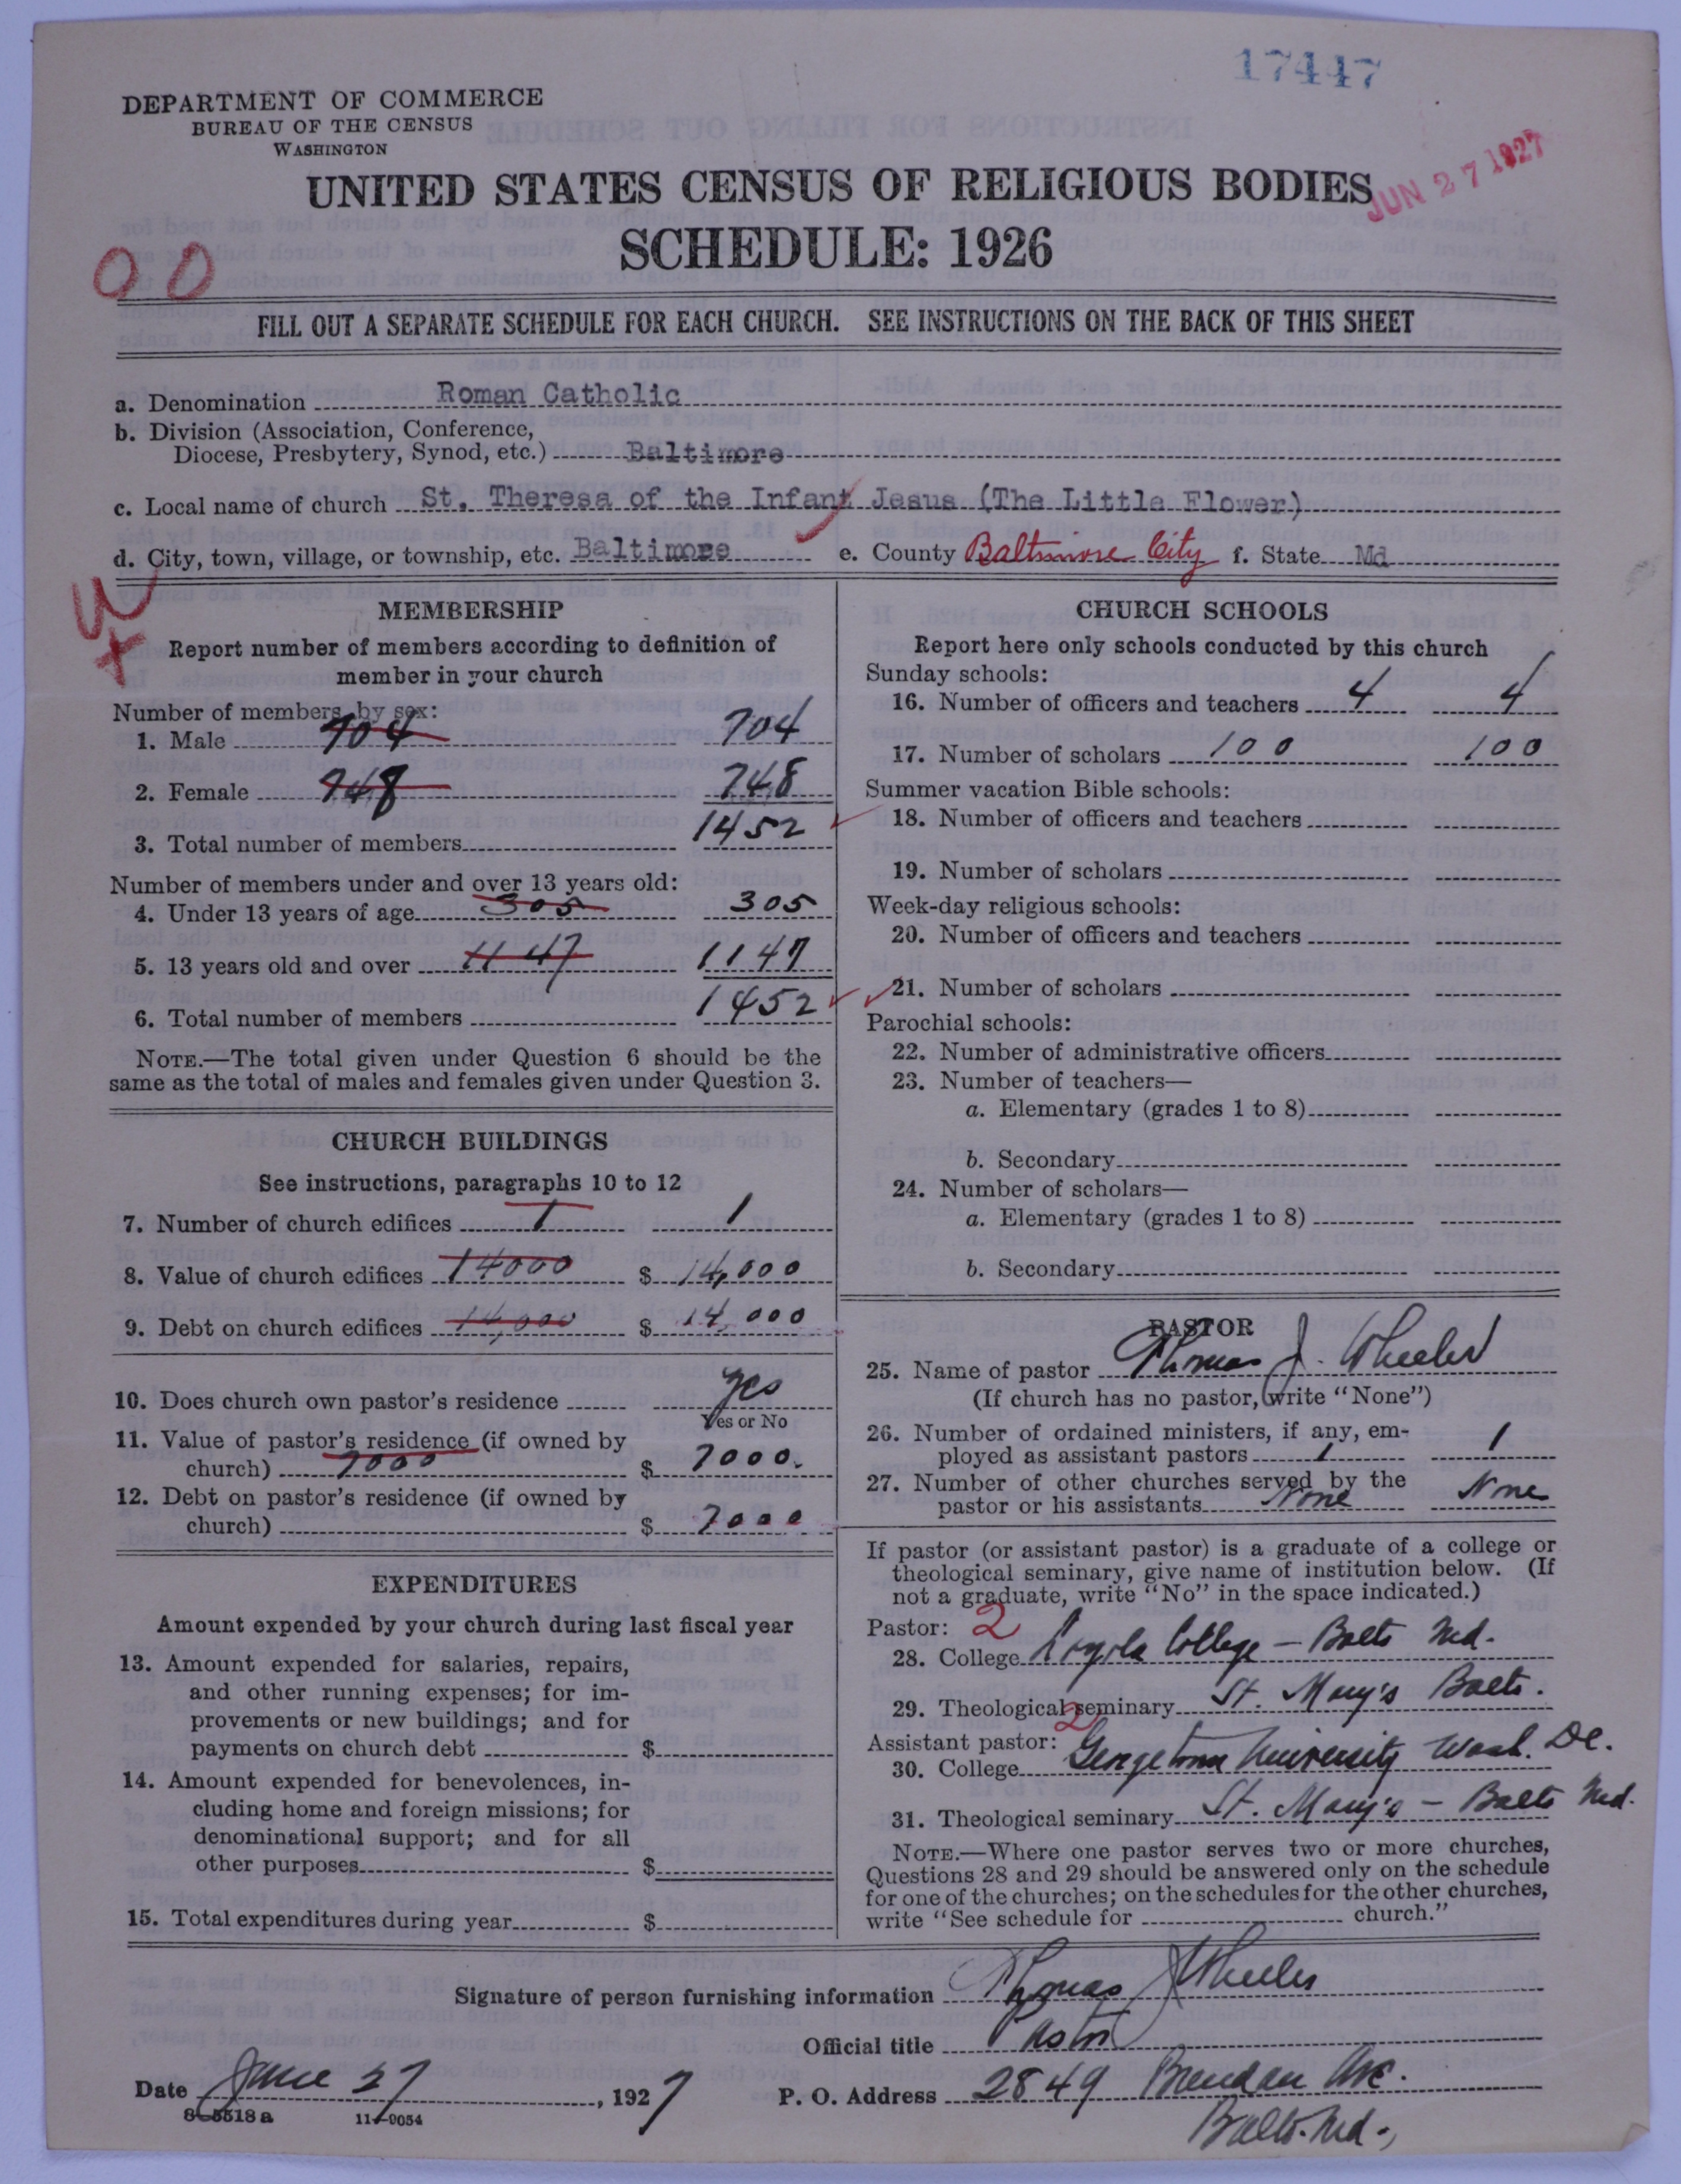 17447
DEPARTMENT OF COMMERCE
BUREAU OF THE CENSUS
WASHINGTON
JUN 27 1927
UNITED STATES CENSUS OF RELIGIOUS BODIES
SCHEDULE: 1926
00
FILL OUT A SEPARATE SCHEDULE FOR EACH CHURCH. SEE INSTRUCTIONS ON THE BACK OF THIS SHEET
a. Denomination Roman Catholic
b. Division (Association, Conference,
Diocese, Presbytery, Synod, etc.) Baltimore
c. Local name of church St. Theresa of the Infant Jesus (The Little Flower)
d. City, town, village, or township, etc. Baltimore e. County Baltimore City f. State Md
MEMBERSHIP
Report number of members according to definition of
member in your church
Number of members by sex:
1. Male 704 704
2. Female 748 748
3. Total number of members 1452
Number of members under and over 13 years old:
4. Under 13 years of age 305 305
5. 13 years old and over 1147 1147
6. Total number of members 1452
NOTE.—The total given under Question 6 should be the
same as the total of males and females given under Question 3.
CHURCH BUILDINGS
See instructions, paragraphs 10 to 12
7. Number of church edifices 1 1
8. Value of church edifices 14000 $ 14,000
9. Debt on church edifices 14,000 $ 14,000
10. Does church own pastor's residence yes
Yes or No
11. Value of pastor's residence (if owned by
church) 7000 $ 7000.
12. Debt on pastor's residence (if owned by
church) $ 7000
EXPENDITURES
Amount expended by your church during last fiscal year
13. Amount expended for salaries, repairs,
and other running expenses; for im-
provements or new buildings; and for
payments on church debt $
14. Amount expended for benevolences, in-
cluding home and foreign missions; for
denominational support; and for all
other purposes $
15. Total expenditures during year $
CHURCH SCHOOLS
Report here only schools conducted by this church
Sunday schools:
16. Number of officers and teachers 4 4
17. Number of scholars 100 100
Summer vacation Bible schools:
18. Number of officers and teachers
19. Number of scholars
Week-day religious schools:
20. Number of officers and teachers
21. Number of scholars
Parochial schools:
22. Number of administrative officers
23. Number of teachers—
a. Elementary (grades 1 to 8)
b. Secondary
24. Number of scholars—
a. Elementary (grades 1 to 8)
b. Secondary
PASTOR
25. Name of pastor Thomas J. Wheeler
(If church has no pastor, write "None")
26. Number of ordained ministers, if any, em-
ployed as assistant pastors 1 1
27. Number of other churches served by the
pastor or his assistants None None
If pastor (or assistant pastor) is a graduate of a college or
theological seminary, give name of institution below. (If
not a graduate, write "No" in the space indicated.)
Pastor: 2
28. College Loyola College – Balto Md.
29. Theological seminary St. Mary's Balto.
Assistant pastor: 2
30. College Georgetown University Wash. DC.
31. Theological seminary St. Mary's – Balto Md.
NOTE.—Where one pastor serves two or more churches,
Questions 28 and 29 should be answered only on the schedule
for one of the churches; on the schedules for the other churches,
write "See schedule for church."
Signature of person furnishing information Thomas J Wheeler
Official title Pastor
Date June 27, 1927 P. O. Address 2849 Brendan Ave.
Balto. Md.,
8—5518 a 11—9054